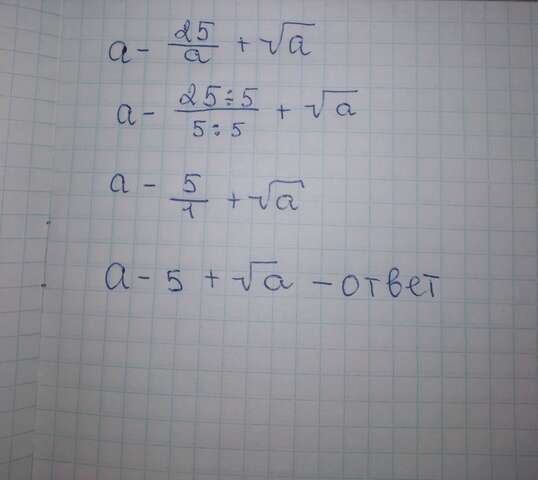 a - 25/a + √a
a - 25÷5/5:5 + √a
a - 5/1 + √a
a - 5 + √a - ответ